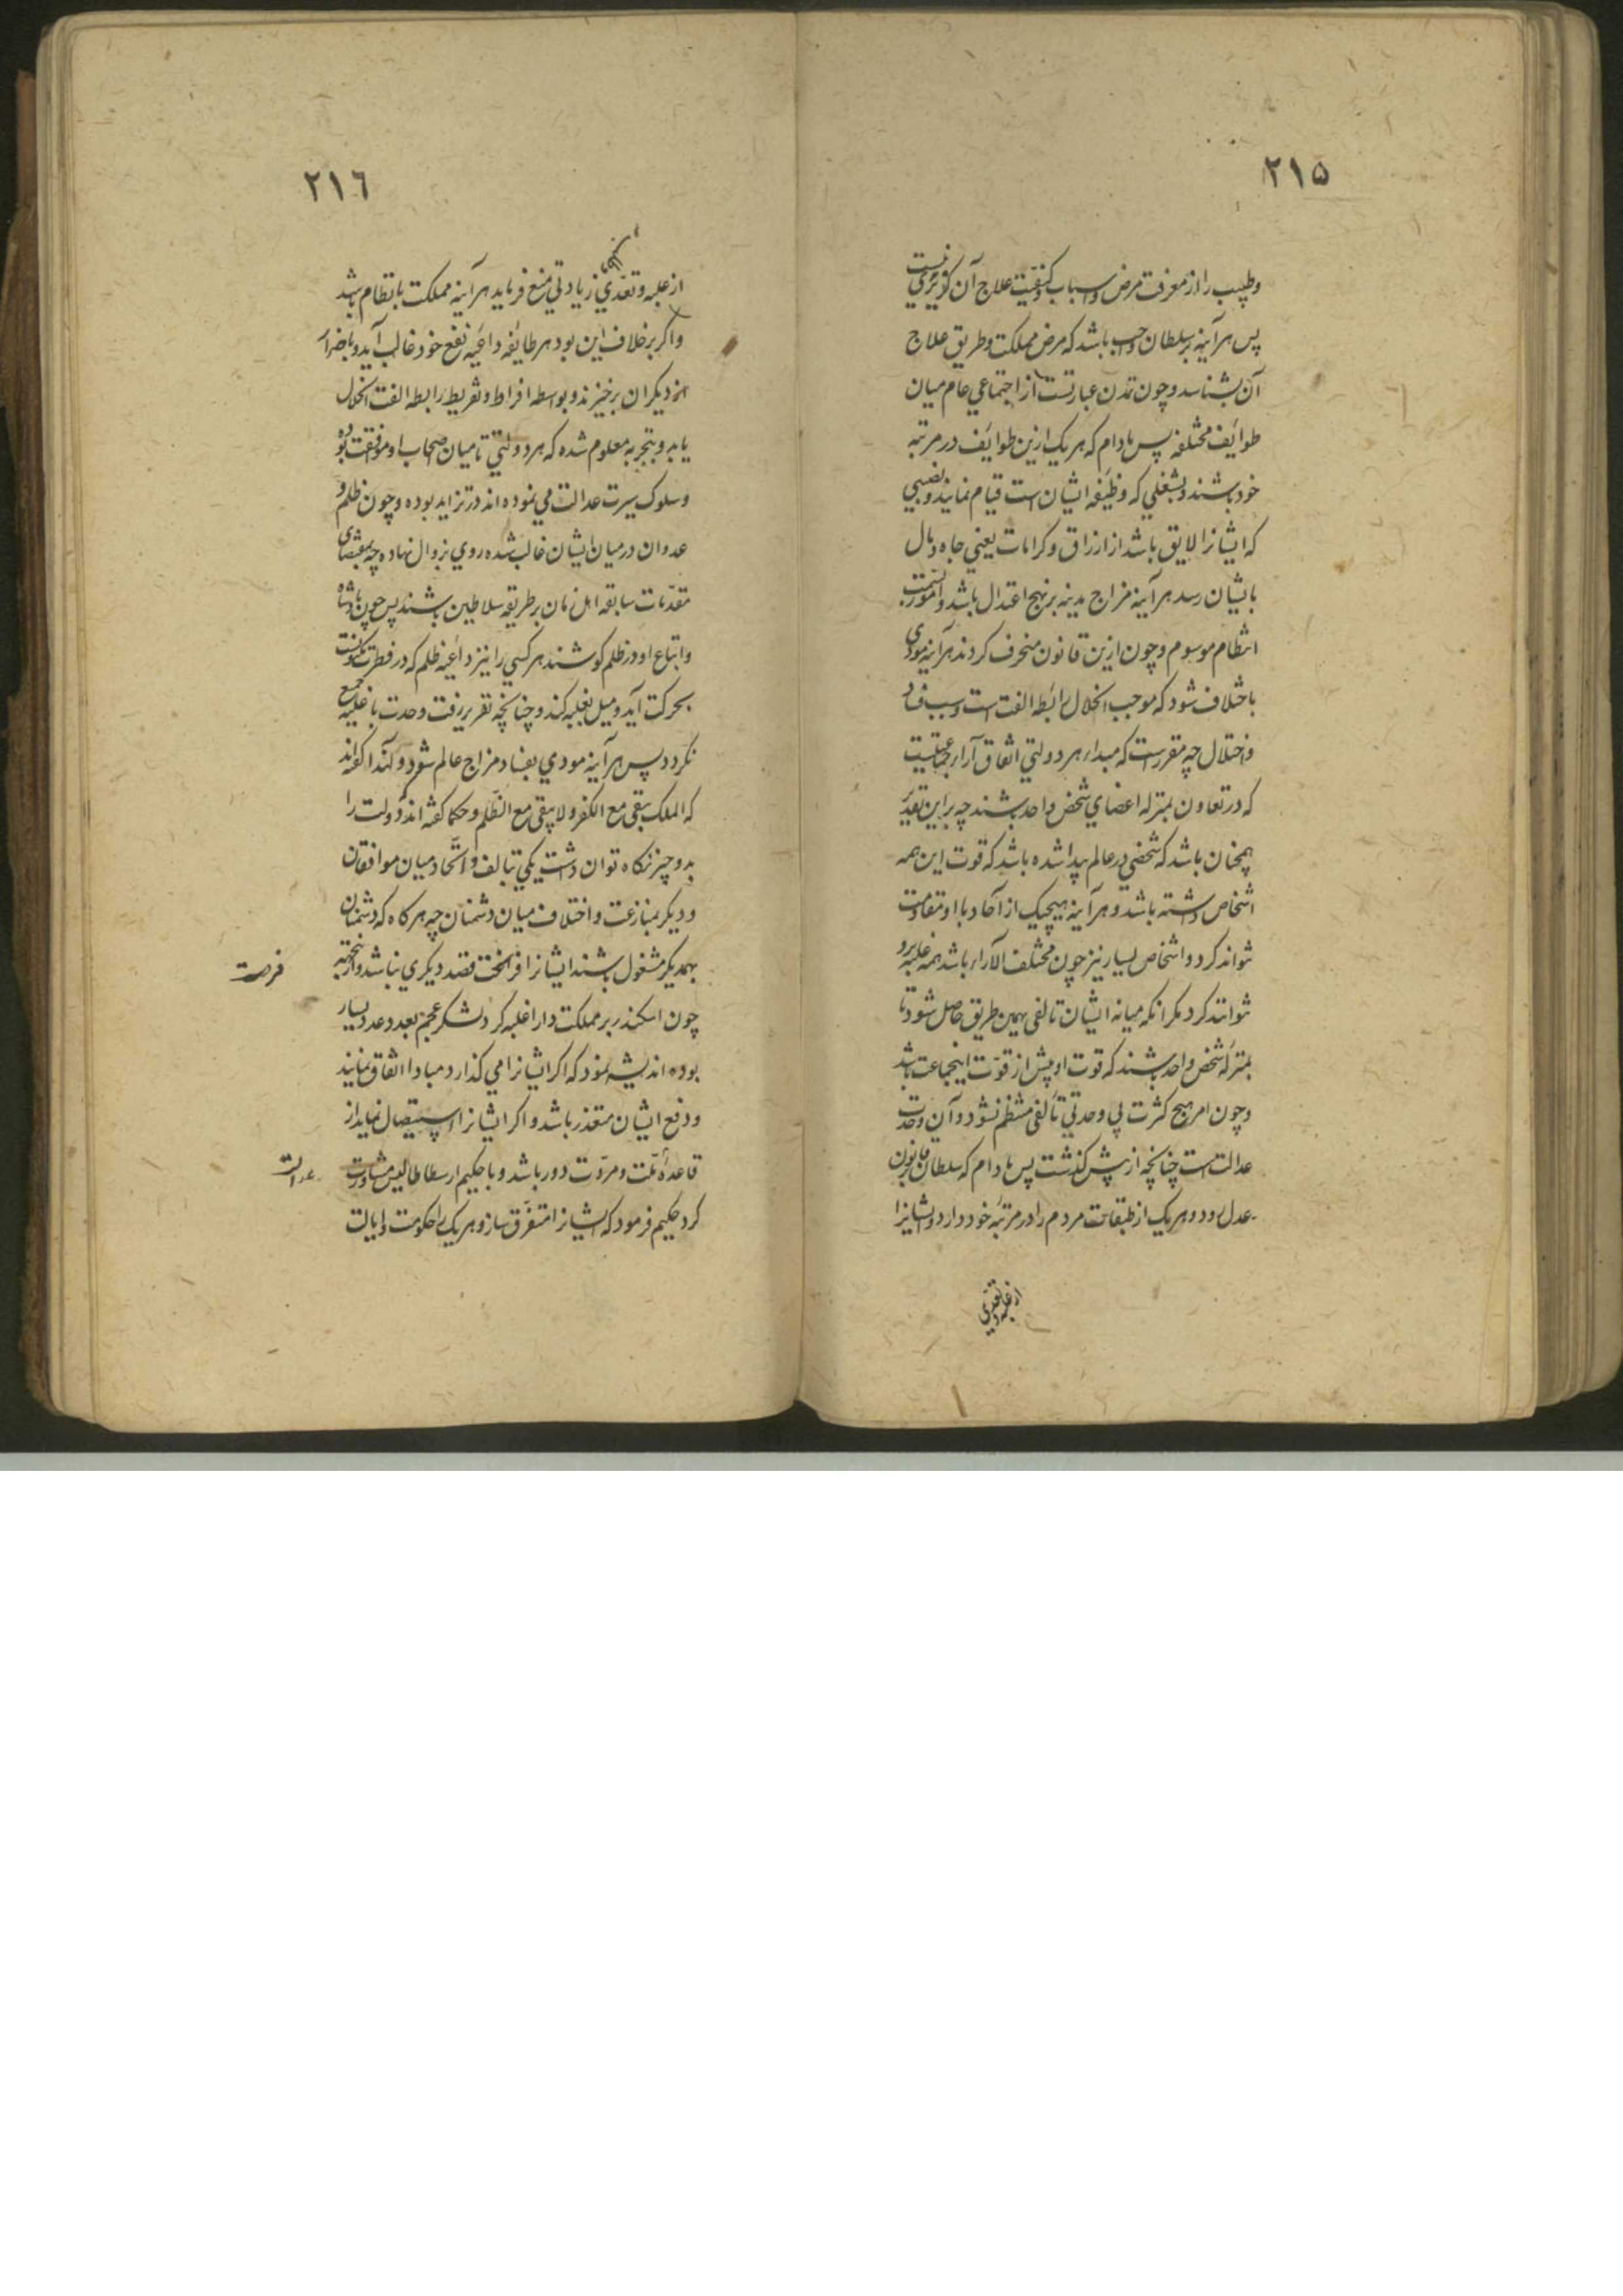 ۲۱۵
وطبیب را از معرفت مرض واسباب وکیفیت علاج آن گزیری نیست
پس هرآینه بر سلطان واجب باشد که مرض مملکت وطریق علاج
آن بشناسد وچون تمدن عبارتست از اجتماعي عام میان
طوایف مختلفه پس مادام که هر یک ازین طوایف در مرتبه
خود باشند وبشغلي که وظیفه ایشان است قیام نمایند ونصیبي
که ایشانرا لایق باشد از ارزاق وکرامات یعني جاه ومال
بایشان رسد هرآینه مزاج مدینه بر نهج اعتدال باشد وامور بسمت
انتظام موسوم وچون ازین قانون منحرف کردند هرآینه مودی
باختلاف شود که موجب انحلال رابطه الفت است وسبب فساد
واختلال چه مقررست که مبداء هر دولتي اتفاق آراء جماعتیست
که در تعاون بمنزله اعضاي شخص واحد باشند چه براین تقدیر
همچنان باشد که شخصي در عالم پیدا شده باشد که قوت این همه
اشخاص داشته باشد وهرآینه هیچیک از آحاد با او مقاومت
نتواند کرد واشخاص بسیار نیز چون مختلف الآراء باشد همه غلبه برو
نتوانند کرد مکر انکه میانه ایشان تالفی بهمین طریق حاصل شود تا
بمنزله شخص واحد باشند که قوت او بیش از قوت اینجماعت باشد
وچون امر هیچ کثرت بي وحدتي تألفی منتظم نشود وآن وحدت
عدالت است چنانچه از پیش کذشت پس مادام که سلطان بقانون
عدل رود وهر یک از طبقات مردم را در مرتبه خود دارد وایشانرا
از غلبه وتعدي
۲۱٦
از غلبه وتعدّي زیادتي منع فرماید هرآینه مملکت بانتظام باشد
واکر بر خلاف این بود هر طائفه داعیه نفع خود غالب آید وباضرار
دیکران برخیزند وبواسطه افراط وتفریط رابطه الفت انحلال
یابد وبتجربه معلوم شده که هر دولتي تا میان اصحاب او موافقت بوده
وسلوک سیرت عدالت مي نموده اند در تزاید بوده وچون ظلم و
عدوان در میان ایشان غالب شده روي بزوال نهاده چه بمقتضای
مقدّمات سابقه اهل زمان بر طریقه سلاطین باشند پس چون پادشاه
واتباع او در ظلم کوشند هر کسي را نیز داعیه ظلم که در فطرت مکونست
بحرکت آید ومیل بغلبه کند وچنانچه تقریر رفت وحدت با غلبه جمع
نکردد پس هرآینه مودي بفساد مزاج عالم شود ولهذا کفته اند
که الملک یبقی مع الکفر ولا یبقی مع الظّلم وحکما کفته اند دولت را
بدو چیز نکاه توان داشت یکي بتالف واتّحاد میان موافقان
ودیکر بمنازعت واختلاف میان دشمنان چه هر کاه که دشمنان
بهمدیکر مشغول باشند ایشانرا فراغت قصد دیکری نباشد وازینجهة
فرصت
چون اسکندر بر مملکت دارا غلبه کرد ولشکر عجم بعدد وعدد بسیار
بوده اندیشه نمود که اکر ایشانرا مي کذارد مبادا اتفاق نمایند
ودفع ایشان متعذر باشد واکر ایشانرا استیصال نماید از
قاعده ملّت ومروّت دور باشد وبا حکیم ارسطاطالیس مشاورت
عدالت
کرد حکیم فرمود که ایشانرا متفرّق ساز وهر یک را حکومت وایالت